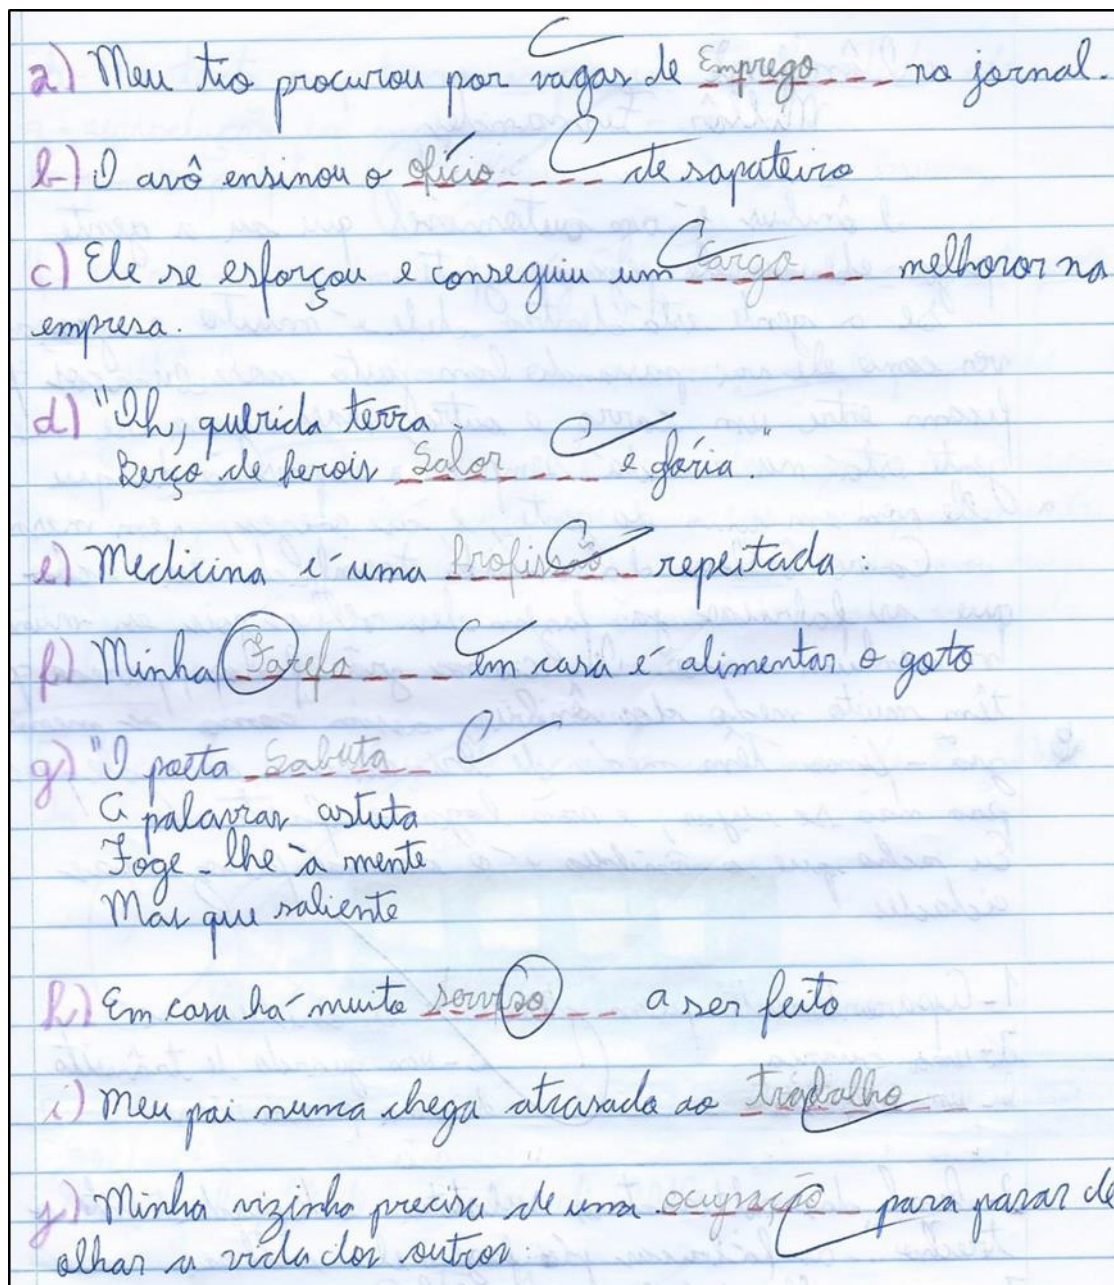 a) Meu tio procurou por vagas de Emprego no jornal.
b) O avô ensinou o ofício de sapateiro
c) Ele se esforçou e conseguiu um Cargo melhoror na
empresa.
d) "Oh, qubrida terra
Berço de herois Salor e glória."
e) Medicina é uma Profissão repeitada:
f) Minha Tarefa em casa é alimentar o gato
g) "O poeta Labuta
A palavras astuta
Foge-lhe à mente
Mas que saliente
h) Em casa há muito serviso a ser feito
i) Meu pai nunca chega atrasado ao trabalho
j) Minha vizinha precisa de uma ocupação para parar de
olhar a vida dos outros: